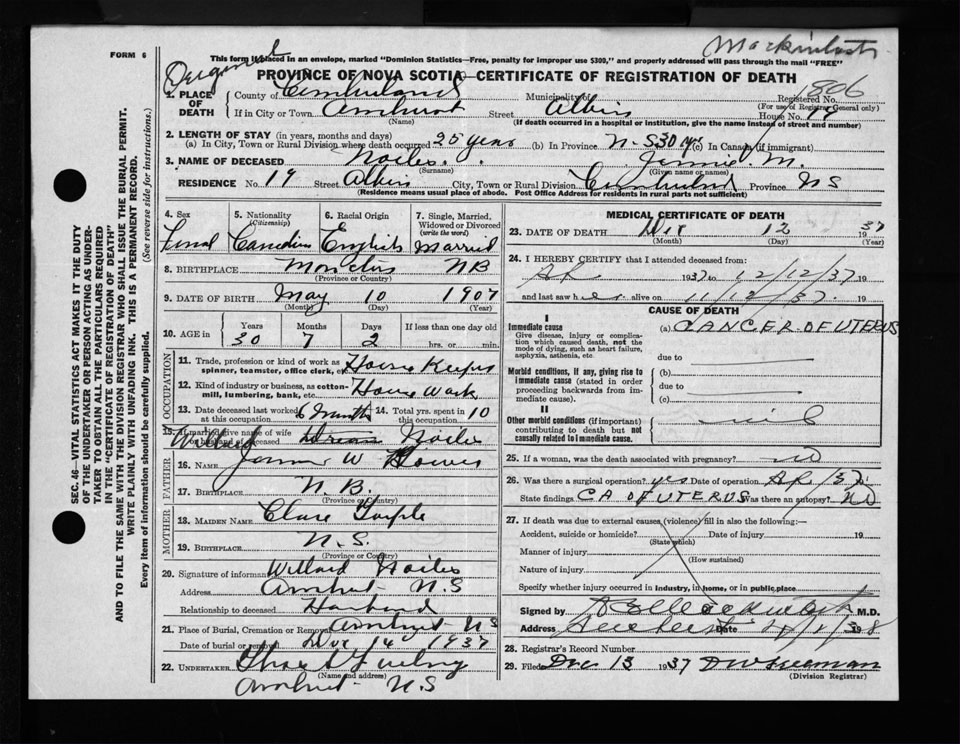 FORM 6
Mackintosh
Original
This form if placed in an envelope, marked "Dominion Statistics—Free, penalty for improper use $300," and properly addressed will pass through the mail "FREE"
PROVINCE OF NOVA SCOTIA—CERTIFICATE OF REGISTRATION OF DEATH
1806
1. PLACE OF DEATH
County of Cumberland Municipality of Registered No.
(For use of Registrar General only)
If in City or Town Amherst Street Albion House No. 19
(Name) (If death occurred in a hospital or institution, give the name instead of street and number)
2. LENGTH OF STAY (in years, months and days)
(a) In City, Town or Rural Division where death occurred 25 years (b) In Province N.S. 30 yrs (c) In Canada (if immigrant)
3. NAME OF DECEASED Noiles Jennie M.
(Surname) (Given name or names)
RESIDENCE No. 19 Street Albion City, Town or Rural Division Cumberland Province NS
(Residence means usual place of abode. Post Office Address for residents in rural parts not sufficient)
4. Sex 5. Nationality (Citizenship) 6. Racial Origin 7. Single, Married, Widowed or Divorced (write the word)
Femal Canadian English Married
8. BIRTHPLACE Moncton NB
(Province or Country)
9. DATE OF BIRTH May 10 1907
(Month) (Day) (Year)
10. AGE in Years Months Days If less than one day old
30 7 2 hrs. or min.
OCCUPATION
11. Trade, profession or kind of work as spinner, teamster, office clerk, etc. House Keeper
12. Kind of industry or business, as cotton-mill, lumbering, bank, etc. House Work
13. Date deceased last worked at this occupation 6 months 14. Total yrs. spent in this occupation 10
15. If married give name of wife or husband of deceased Willard Noiles
FATHER
16. NAME W
17. BIRTHPLACE N.B.
(Province or Country)
MOTHER
18. MAIDEN NAME
19. BIRTHPLACE N.S.
(Province or Country)
20. Signature of informant Willard Noiles
Address Amherst N.S
Relationship to deceased Husband
21. Place of Burial, Cremation or Removal Amherst NS
Date of burial or removal Dec 14 1937
22. UNDERTAKER
(Name and address)
Amherst N.S
MEDICAL CERTIFICATE OF DEATH
23. DATE OF DEATH Dec 12 1937
(Month) (Day) (Year)
24. I HEREBY CERTIFY that I attended deceased from:
Ap 1937 to 12/12/37 19
and last saw her alive on 11/12/37. 19
CAUSE OF DEATH
I
Immediate cause
Give disease, injury or complication which caused death, not the mode of dying, such as heart failure, asphyxia, asthenia, etc
(a) CANCER OF UTERUS
due to
Morbid conditions, if any, giving rise to immediate cause (stated in order proceeding backwards from immediate cause).
(b)
due to
(c)
II
Other morbid conditions (if important) contributing to death but not causally related to immediate cause.
nil
25. If a woman, was the death associated with pregnancy? no
26. Was there a surgical operation? yes Date of operation Ap/37
State findings CA OF UTERUS Was there an autopsy? NO
27. If death was due to external causes (violence) fill in also the following:—
Accident, suicide or homicide? Date of injury 19
(State which)
Manner of injury
(How sustained)
Nature of injury
Specify whether injury occurred in industry, in home, or in public place
Signed by Mackintosh M.D.
Address Amherst Date
28. Registrar's Record Number
29. Filed Dec 13 1937
(Division Registrar)
SEC. 46—VITAL STATISTICS ACT MAKES IT THE DUTY
OF THE UNDERTAKER OR PERSON ACTING AS UNDER-
TAKER TO OBTAIN ALL THE PARTICULARS REQUIRED
IN THE "CERTIFICATE OF REGISTRATION OF DEATH"
AND TO FILE THE SAME WITH THE DIVISION REGISTRAR WHO SHALL ISSUE THE BURIAL PERMIT.
WRITE PLAINLY WITH UNFADING INK. THIS IS A PERMANENT RECORD.
Every item of information should be carefully supplied. (See reverse side for instructions.)